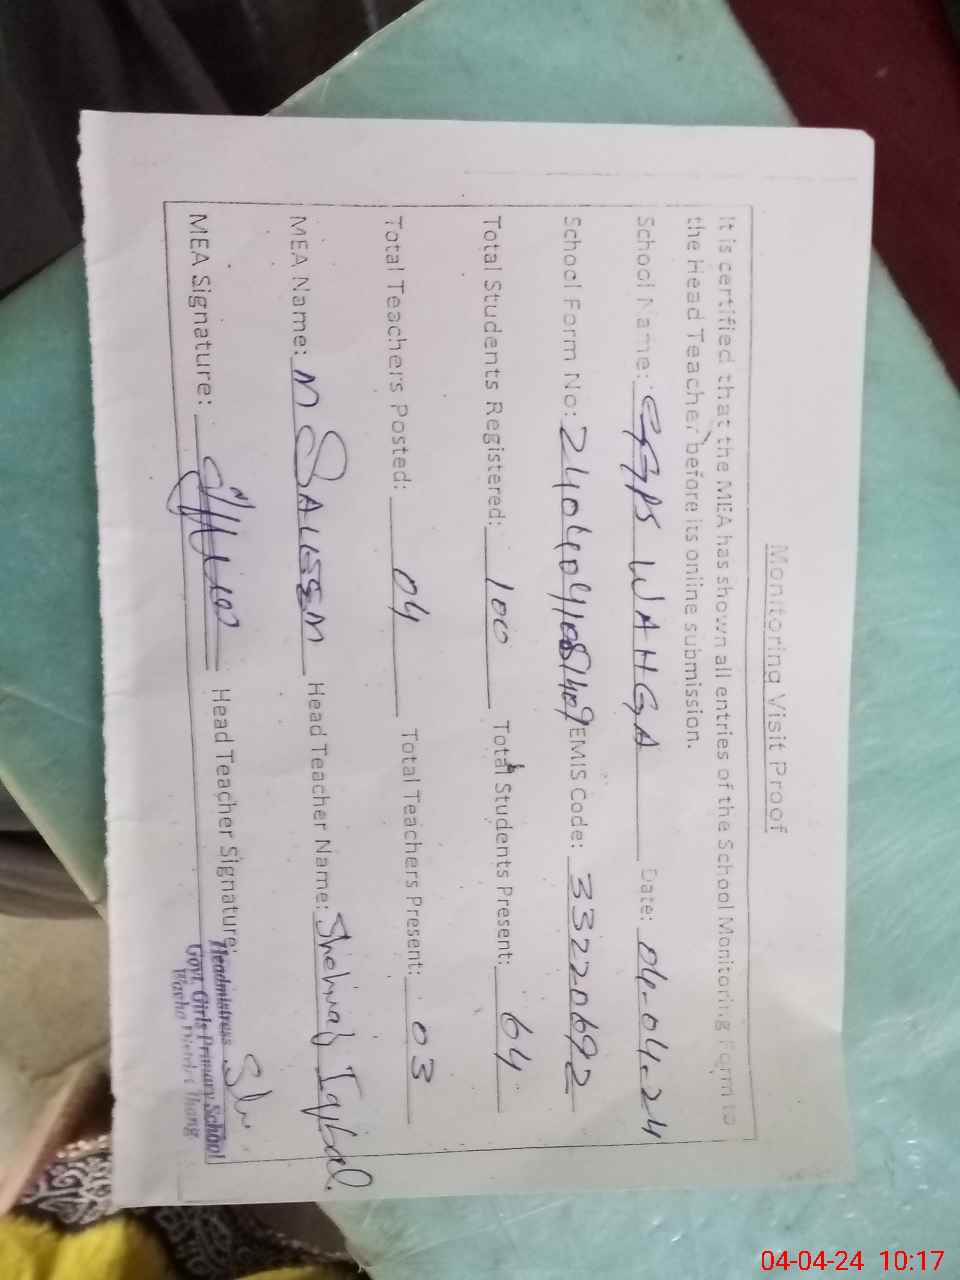 Monitoring Visit Proof
It is certified that the MEA has shown all entries of the School Monitoring Form to
the Head Teacher before its online submission.
School Name: GGPS WAHGA Date: 04-04-24
School Form No: EMIS Code: 33220692
Total Students Registered: 100 Total Students Present: 64
Total Teachers Posted: 04 Total Teachers Present: 03
MEA Name: M SALEEM Head Teacher Name: Iqbal.
MEA Signature: Head Teacher Signature:
Headmistress
Govt. Girls Primary School
District Jhang
04-04-24 10:17